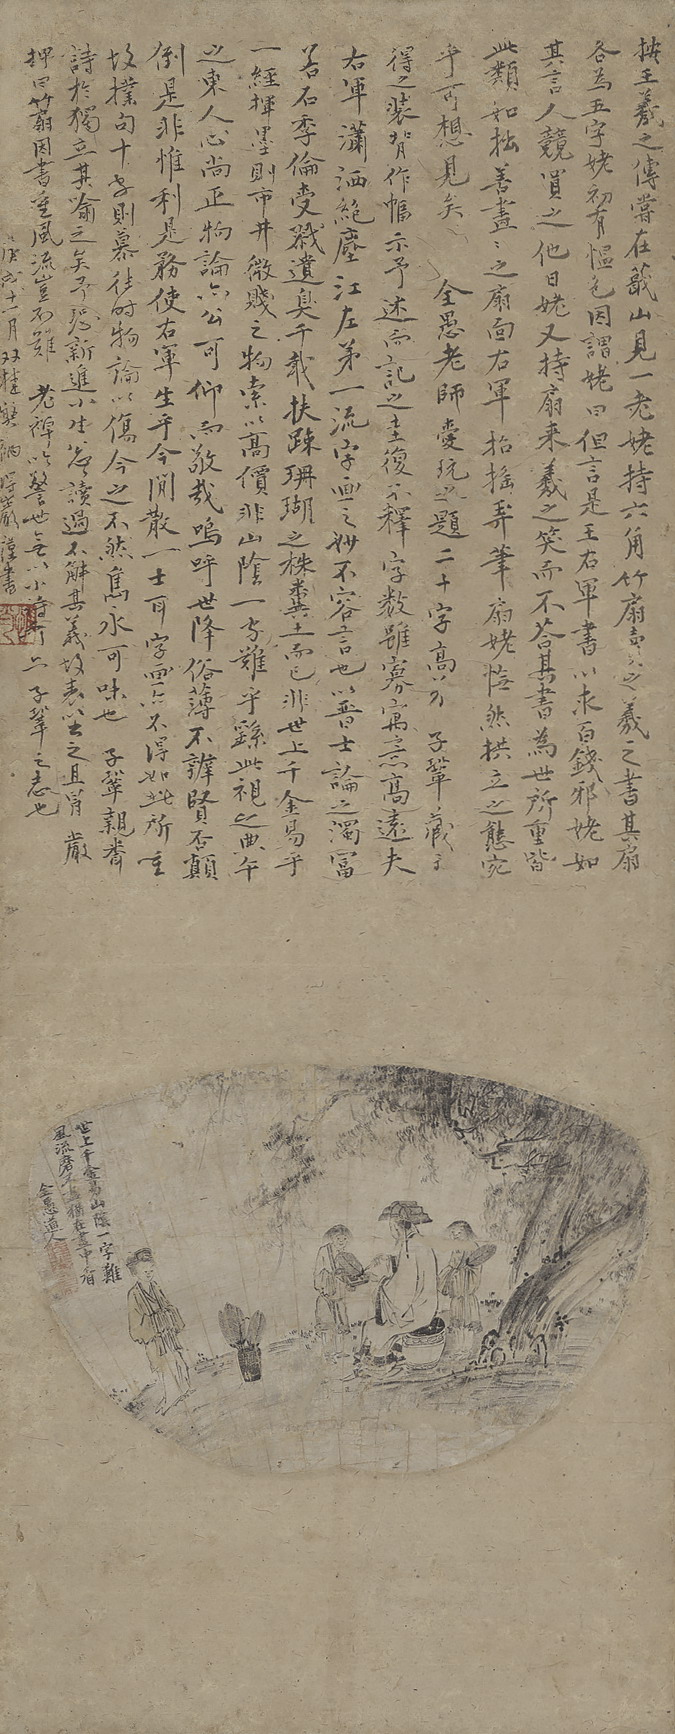 按王羲之傳嘗在蕺山見一老姥持六角竹扇賣之羲之書其扇
各為五字姥初有慍色因謂姥曰但言是王右軍書以求百錢邪姥如
其言人競買之他日姥又持扇来羲之笑而不荅其書為世所重皆
此類如拙善畫之扇面右軍拈搖弄筆扇姥恠然拱立之態宛
乎可想見矣 全愚老師愛玩題二十字高以 子鞏蔵主
得之裝背作幅示予述而記之圭復不釋字数雖寡寓意高遠夫
右軍瀟洒絶塵江左第一流字画之妙不容言也以晋士論之濁富
若石季倫受戮遺臭千載扶踈珊瑚之株糞土而已非世上千金易乎
一經揮墨則市井微賤之物索以高價非山陰一字難乎繇此視之典午
之東人心尚正物論亦公可仰而敬哉嗚呼世降俗薄不辨賢否顛
倒是非惟利是務使右軍生乎今閒散一士耳字画亦不得如此所重
故撲句十字則慕往時物論以傷今之不然雋永可味也 子鞏親炙
詩於獨立其喻之矣予恐新進小生忽讀過不解其義故表以出之且胥 嚴
押曰竹扇因書重風流豈不難 老禅以警世無以小詩子 亦子鞏之志也
庚戌十一月双桂 嚴謹書
世上千金易山陰一字難
風流磨不盡猶在畫中看
全愚道人